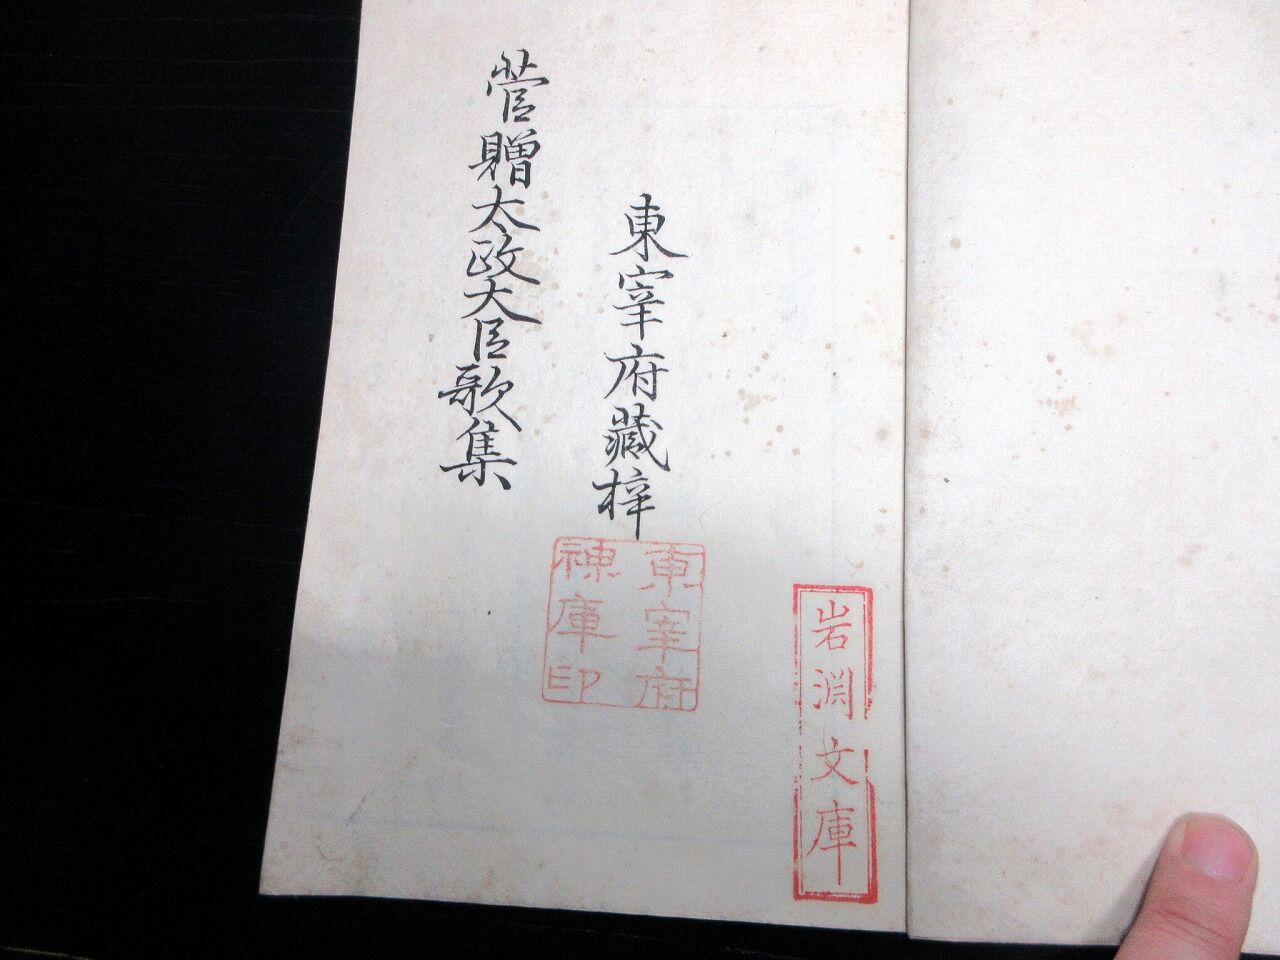 東宰府藏梓
菅贈太政大臣歌集
東宰府
神庫印
岩淵文庫